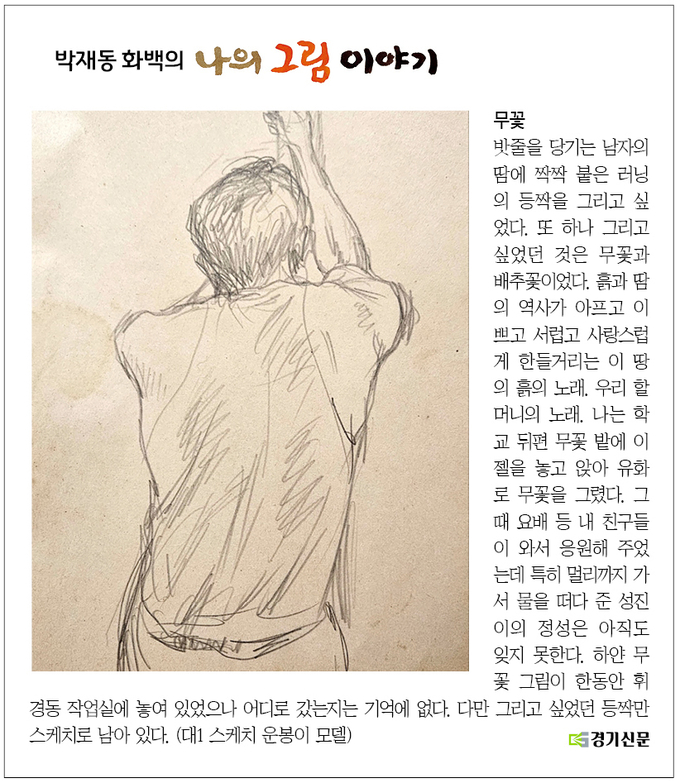 박재동 화백의 나의 그림 이야기
무꽃
밧줄을 당기는 남자의
땀에 짝짝 붙은 러닝
의 등짝을 그리고 싶
었다. 또 하나 그리고
싶었던 것은 무꽃과
배추꽃이었다. 흙과 땀
의 역사가 아프고 이
쁘고 서럽고 사랑스럽
게 한들거리는 이 땅
의 흙의 노래. 우리 할
머니의 노래. 나는 학
교 뒤편 무꽃 밭에 이
젤을 놓고 앉아 유화
로 무꽃을 그렸다. 그
때 요배 등 내 친구들
이 와서 응원해 주었
는데 특히 멀리까지 가
서 물을 떠다 준 성진
이의 정성은 아직도
잊지 못한다. 하얀 무
꽃 그림이 한동안 휘
경동 작업실에 놓여 있었으나 어디로 갔는지는 기억에 없다. 다만 그리고 싶었던 등짝만
스케치로 남아 있다. (대1 스케치 운봉이 모델)
경기신문